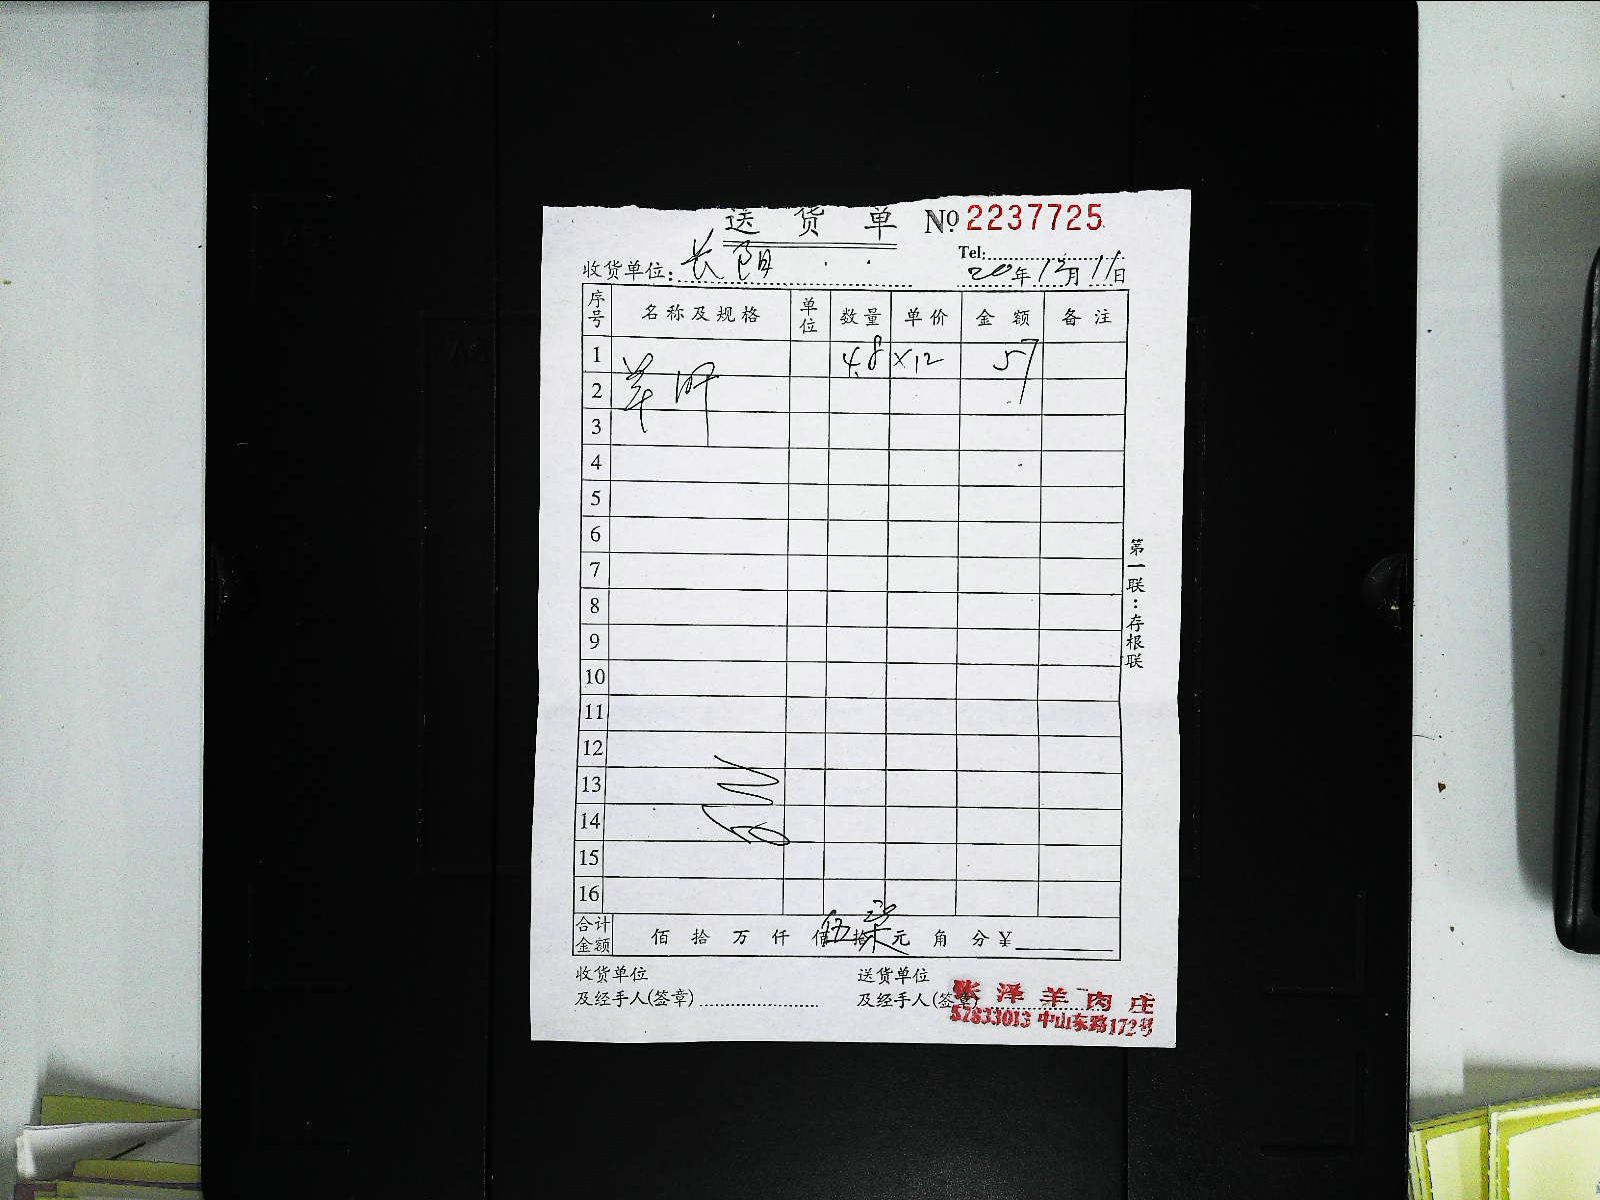 送货单 № 2237725
Tel:
收货单位: 长阳 20年12月11日
序号 名称及规格 单位 数量 单价 金额 备注
1 4.8 ×12 57
2 羊肝
3
4
5
6
7
8
9
10
11
12
13
14
15
16
第一联:存根联
合计金额 佰 拾 万 仟 佰 伍 拾 柒 元 角 分 ¥
收货单位 送货单位
及经手人(签章) 及经手人(签章)
张泽羊肉庄
57833013 中山东路172号